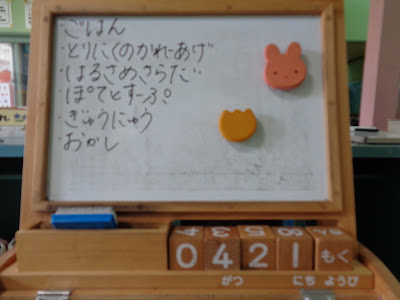 ・ごはん
・とりにくのかれーあげ
・はるさめさらだ
・ぽてとすーぷ
・ぎゅうにゅう
・おかし
04 21 もく
がつ にち ようび